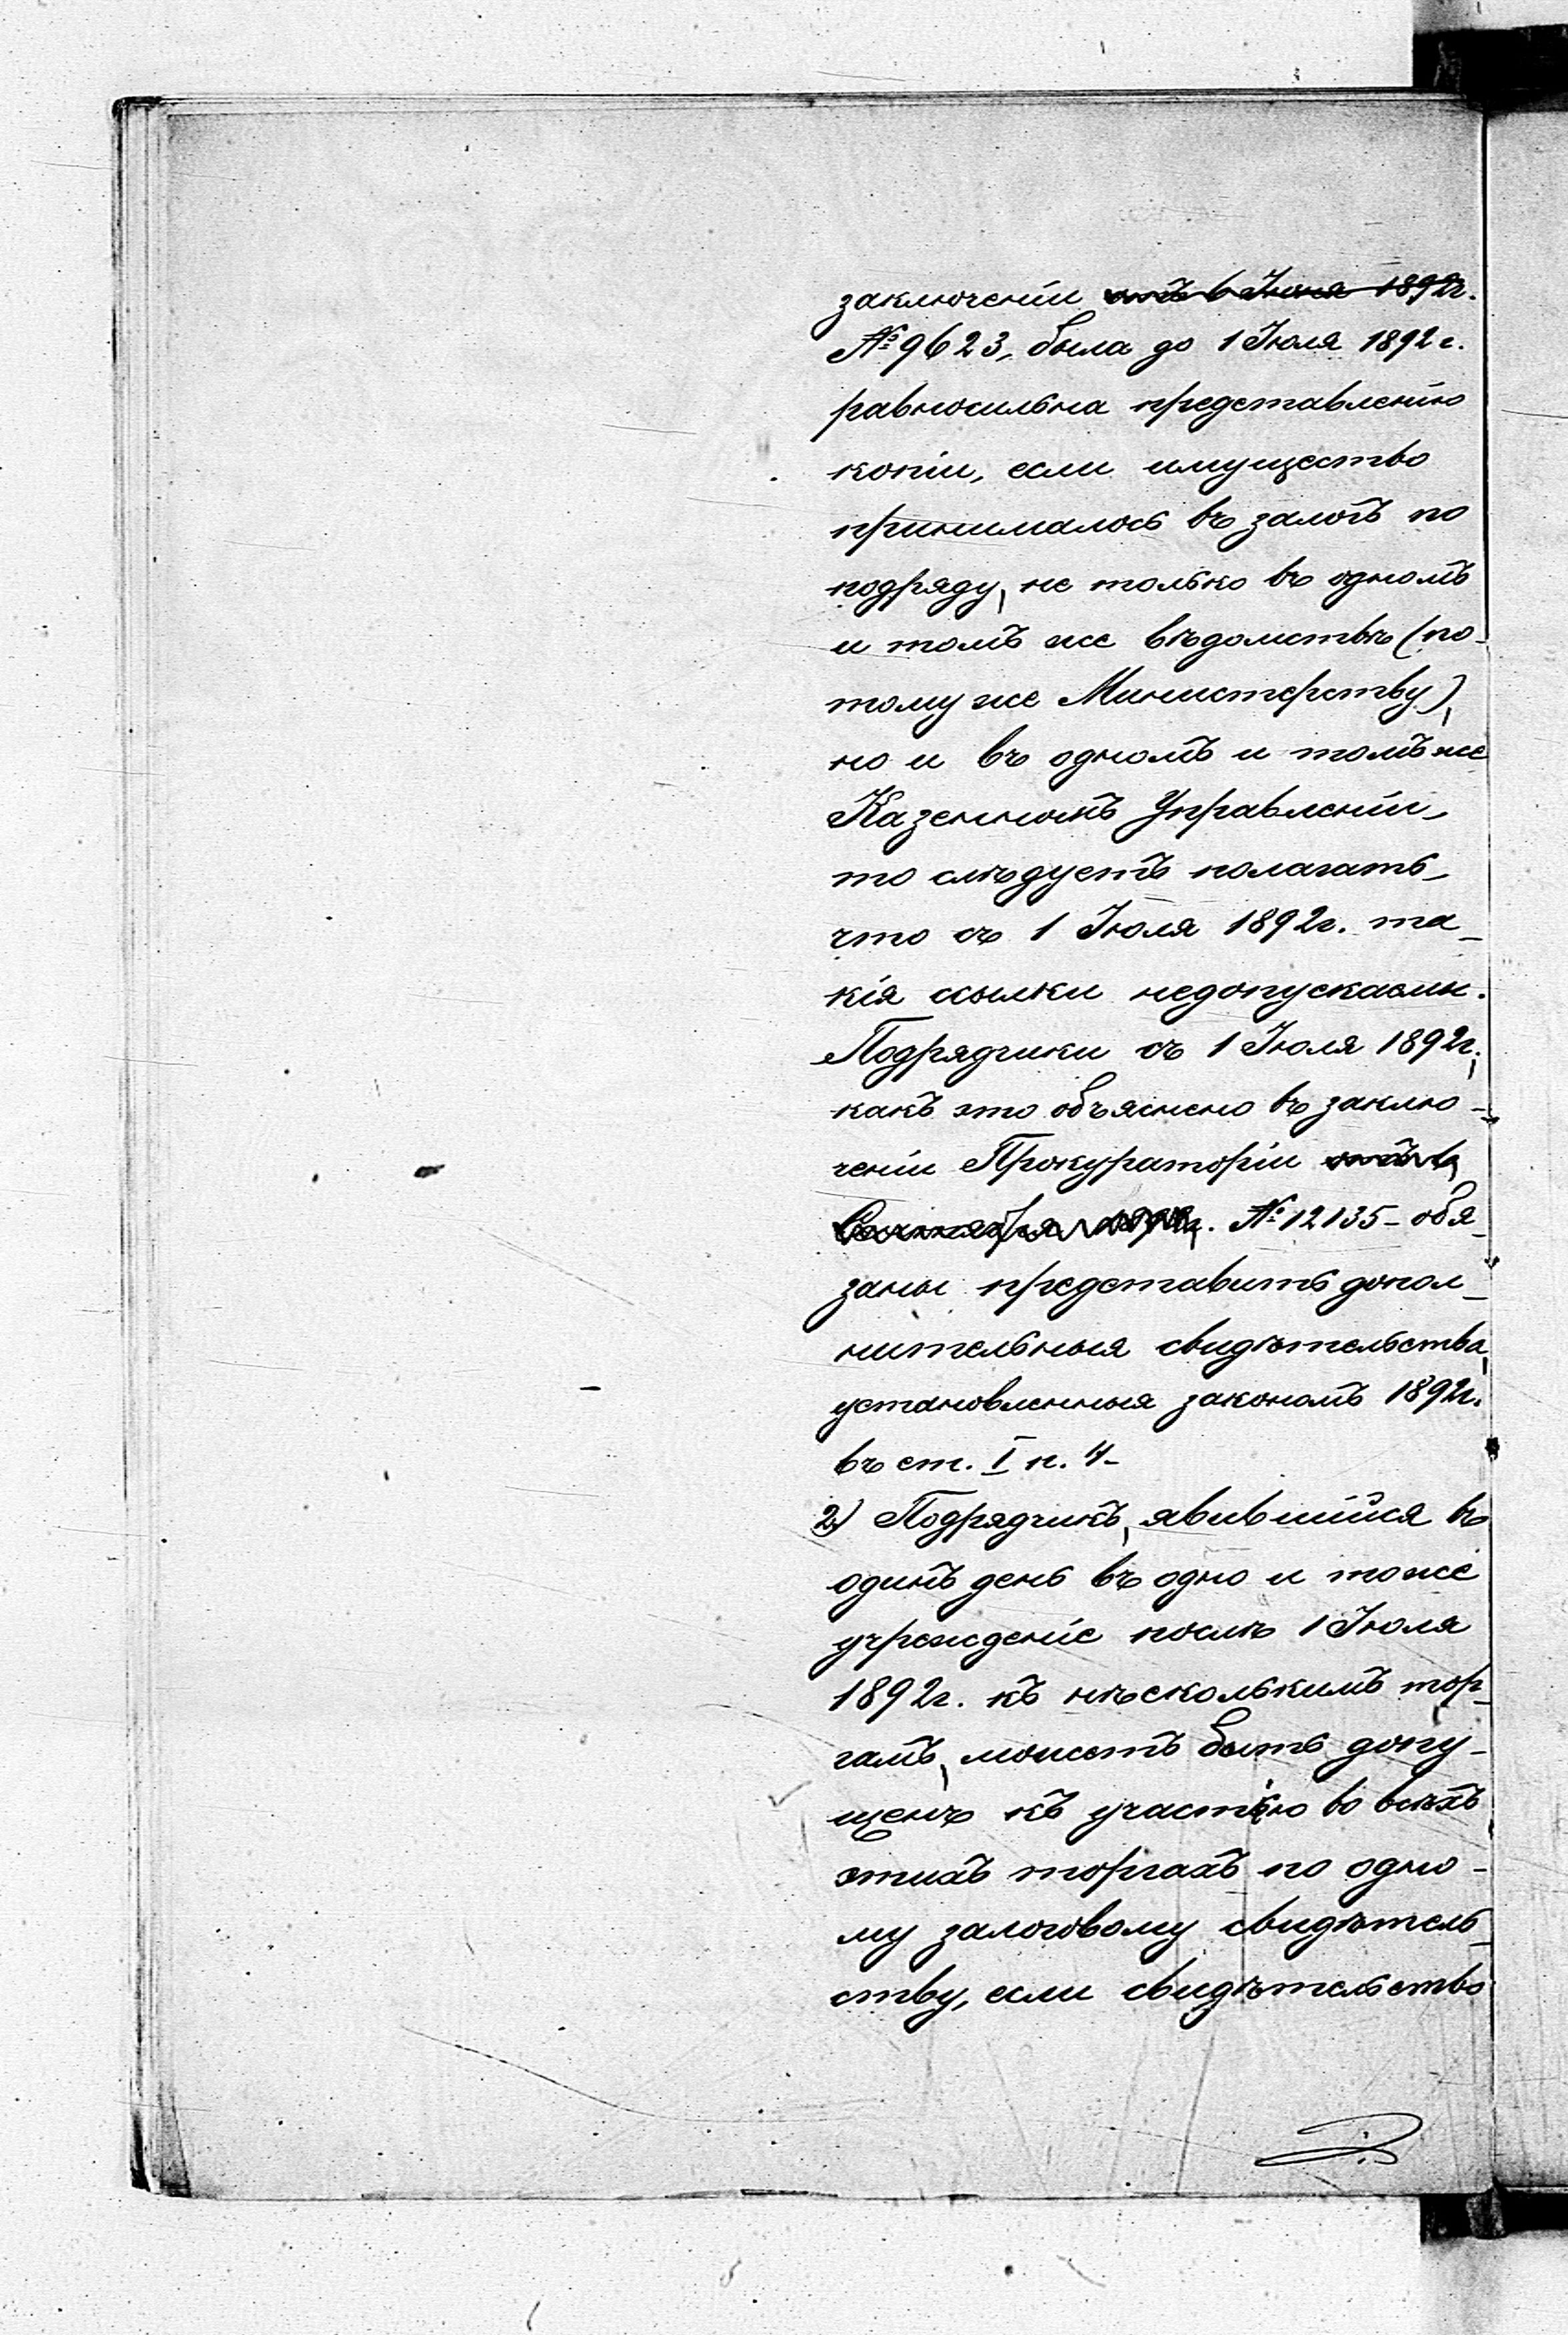 заключеніи отъ 6 Іюня 1892г.
№ 9623, была до 1 Іюля 1892 г.
равносильна представленію
копіи, если имущество
принималось въ залогъ по
подряду, не только въ одномъ
и томъ же вѣдомствѣ (по
тому же Министерству),
но и въ одномъ и томъ же
Казенномъ Управленіи,
то слѣдуетъ полагать,
что съ 1 Іюля 1892г. та-
кія ссылки недопускаемы.
Подрядчики съ 1 Іюля 1892г.,
какъ это объяснено въ заклю-
ченіи Прокураторіи отъ
Сентября 1892г. № 12135 - обя-
заны представить допол-
нительныя свидѣтельства,
установленныя закономъ 1892г.
въ ст. I п. 4-
2) Подрядчикъ, явившійся въ
одинъ день въ одно и тоже
учрежденіе послѣ 1 Іюля
1892г. къ нѣсколькимъ тор-
гамъ, можетъ быть допу-
щенъ къ участію во всѣхъ
этихъ торгахъ по одно-
му залоговому свидѣтель-
ству, если свидѣтельство